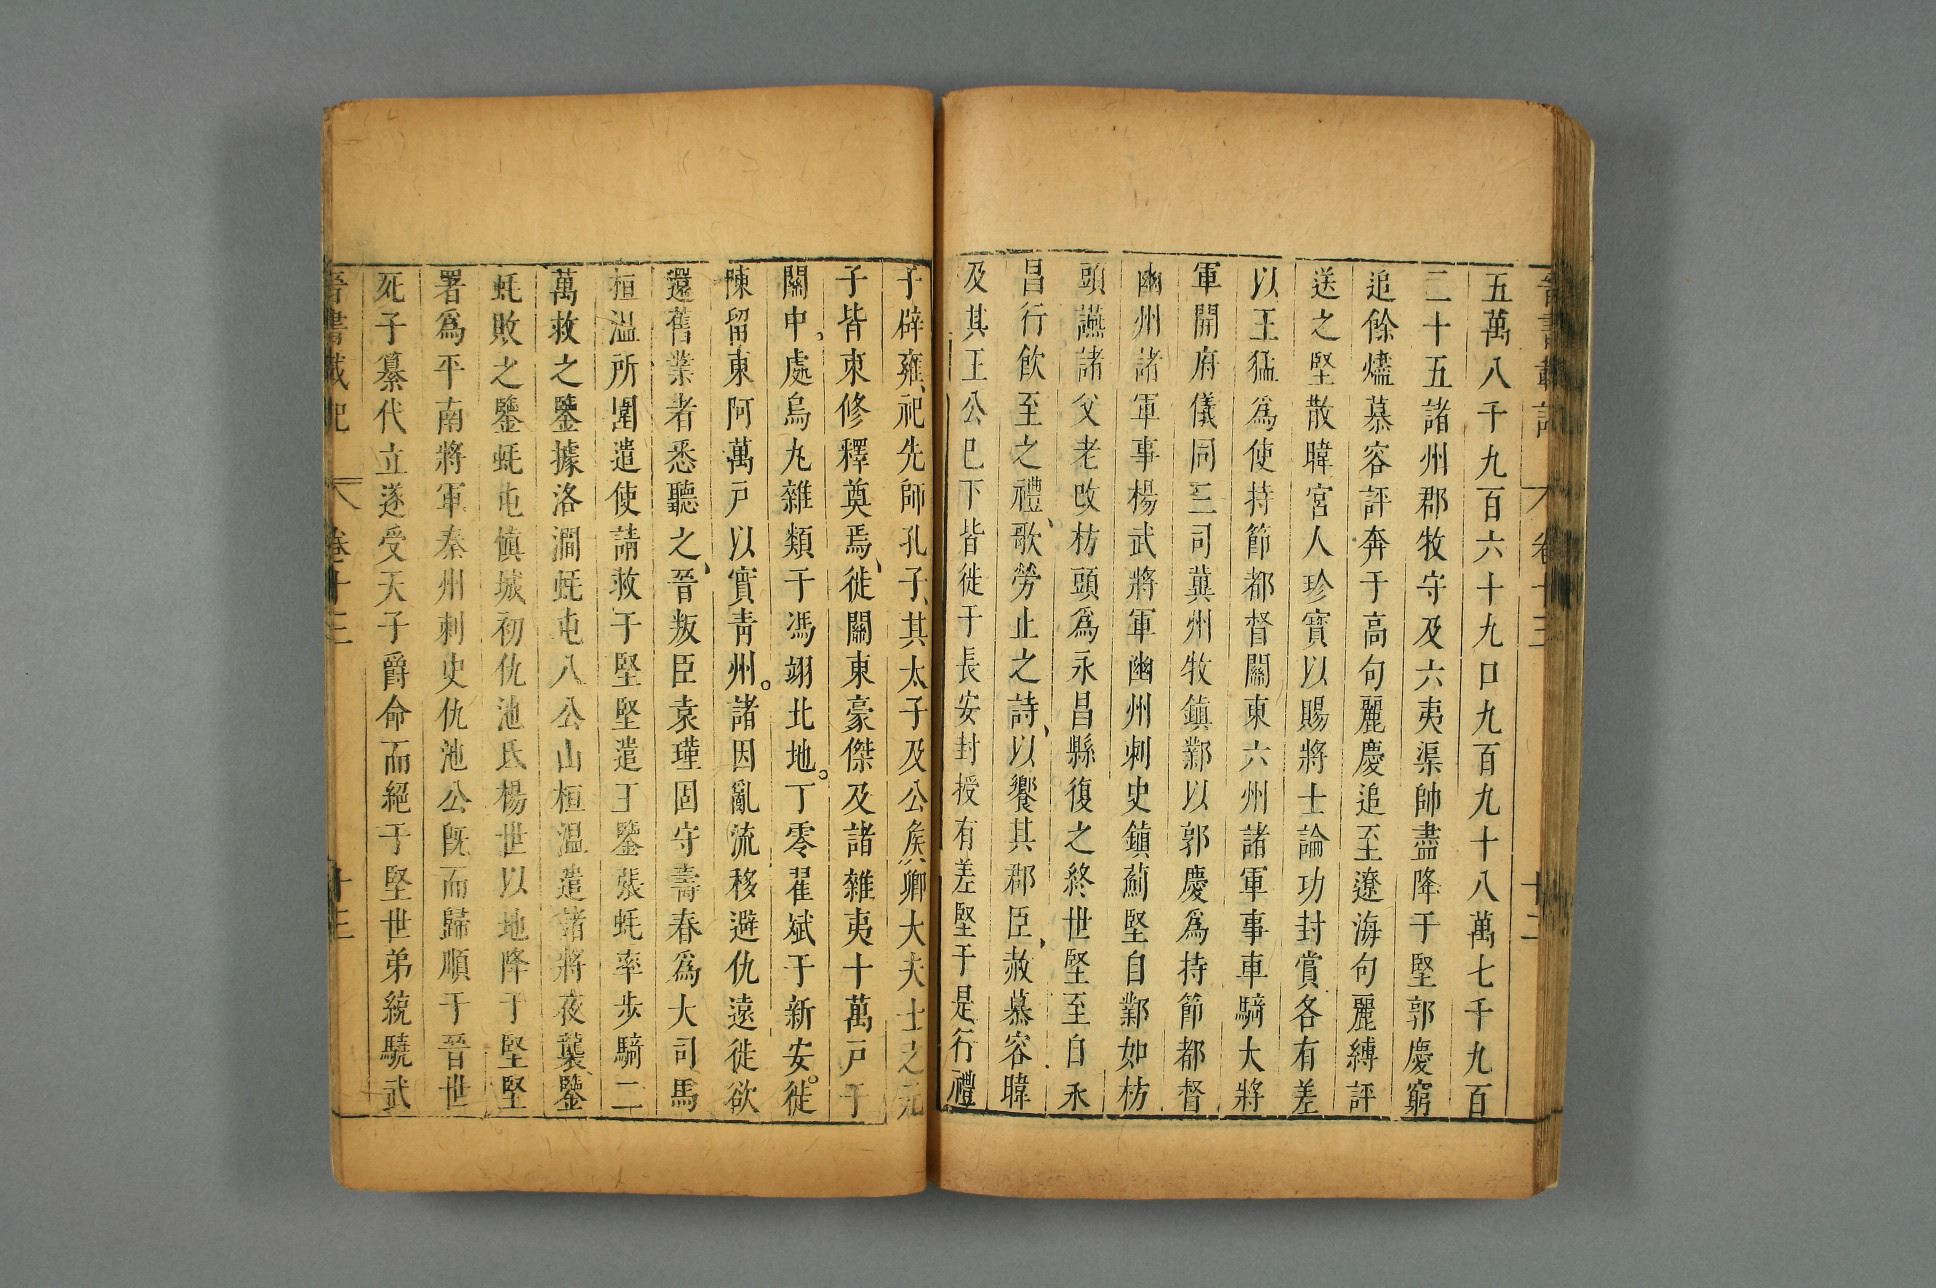 五萬八千九百六十九口九百九十八萬七千九百
三十五諸州郡牧守及六夷渠帥盡降于堅郭慶窮
追餘燼慕容評奔于高句麗慶追至遼海句麗縛評
送之堅散暐宮人珍寶以賜將士論功封賞各有差
以王猛爲使持節都督關東六州諸軍事車騎大將
軍開府儀同三司冀州牧鎮鄴以郭慶爲持節都督
幽州諸軍事楊武將軍幽州刺史鎮薊堅自鄴如枋
頭讌諸父老改枋頭爲永昌縣復之終世堅至自永
昌行飲至之禮、歌勞止之詩、以饗其郡臣、赦慕容暐
及其王公已下皆徙于長安封授有差堅于是行禮
于辟雍、祀先師孔子、其太子及公侯卿大夫士之元
子皆束修釋奠焉、徙關東豪傑及諸雜夷十萬戸于
關中。處烏丸雜類于馮翊北地。丁零翟斌于新安。徙
陳留東阿萬戸以實青州。諸因亂流移避仇遠徙欲
還舊業者悉聽之、晉叛臣袁瑾固守壽春爲大司馬
桓溫所圍遣使請救于堅堅遣王鑒張蚝率步騎二
萬救之鑒據洛澗蚝屯八公山桓溫遣諸將夜襲鑒
蚝敗之鑒蚝屯慎城初仇池氐楊世以地降于堅堅
署爲平南將軍秦州刺史仇池公旣而歸順于晉世
死子纂代立遂受天子爵命而絕于堅世弟統驍武
晉書載記 卷十三 十三